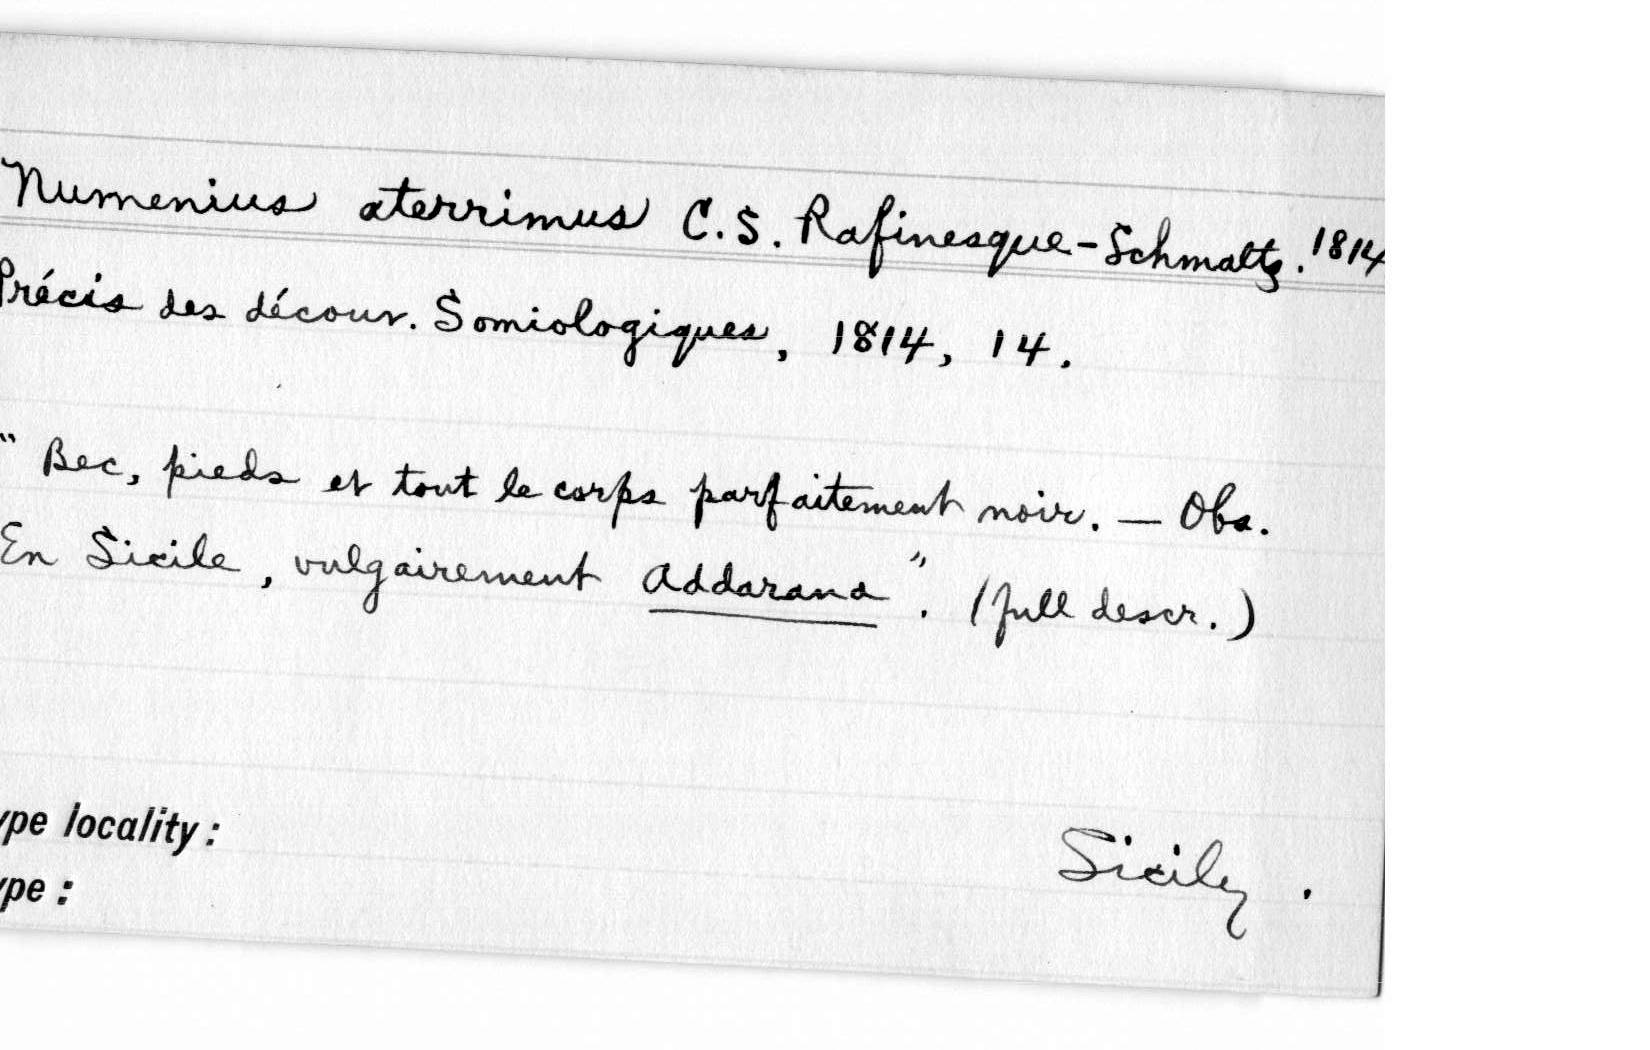 Numenius aterrimus C.S. Rafinesque-Schmaltz. 1814
Précis des décour. Somiologiques, 1814, 14.
" Bec, pieds et tout le corps parfaitement noir. — Obs.
En Sicile, vulgairement Addarana". (full descr.)
ype locality: Sicily.
ype: